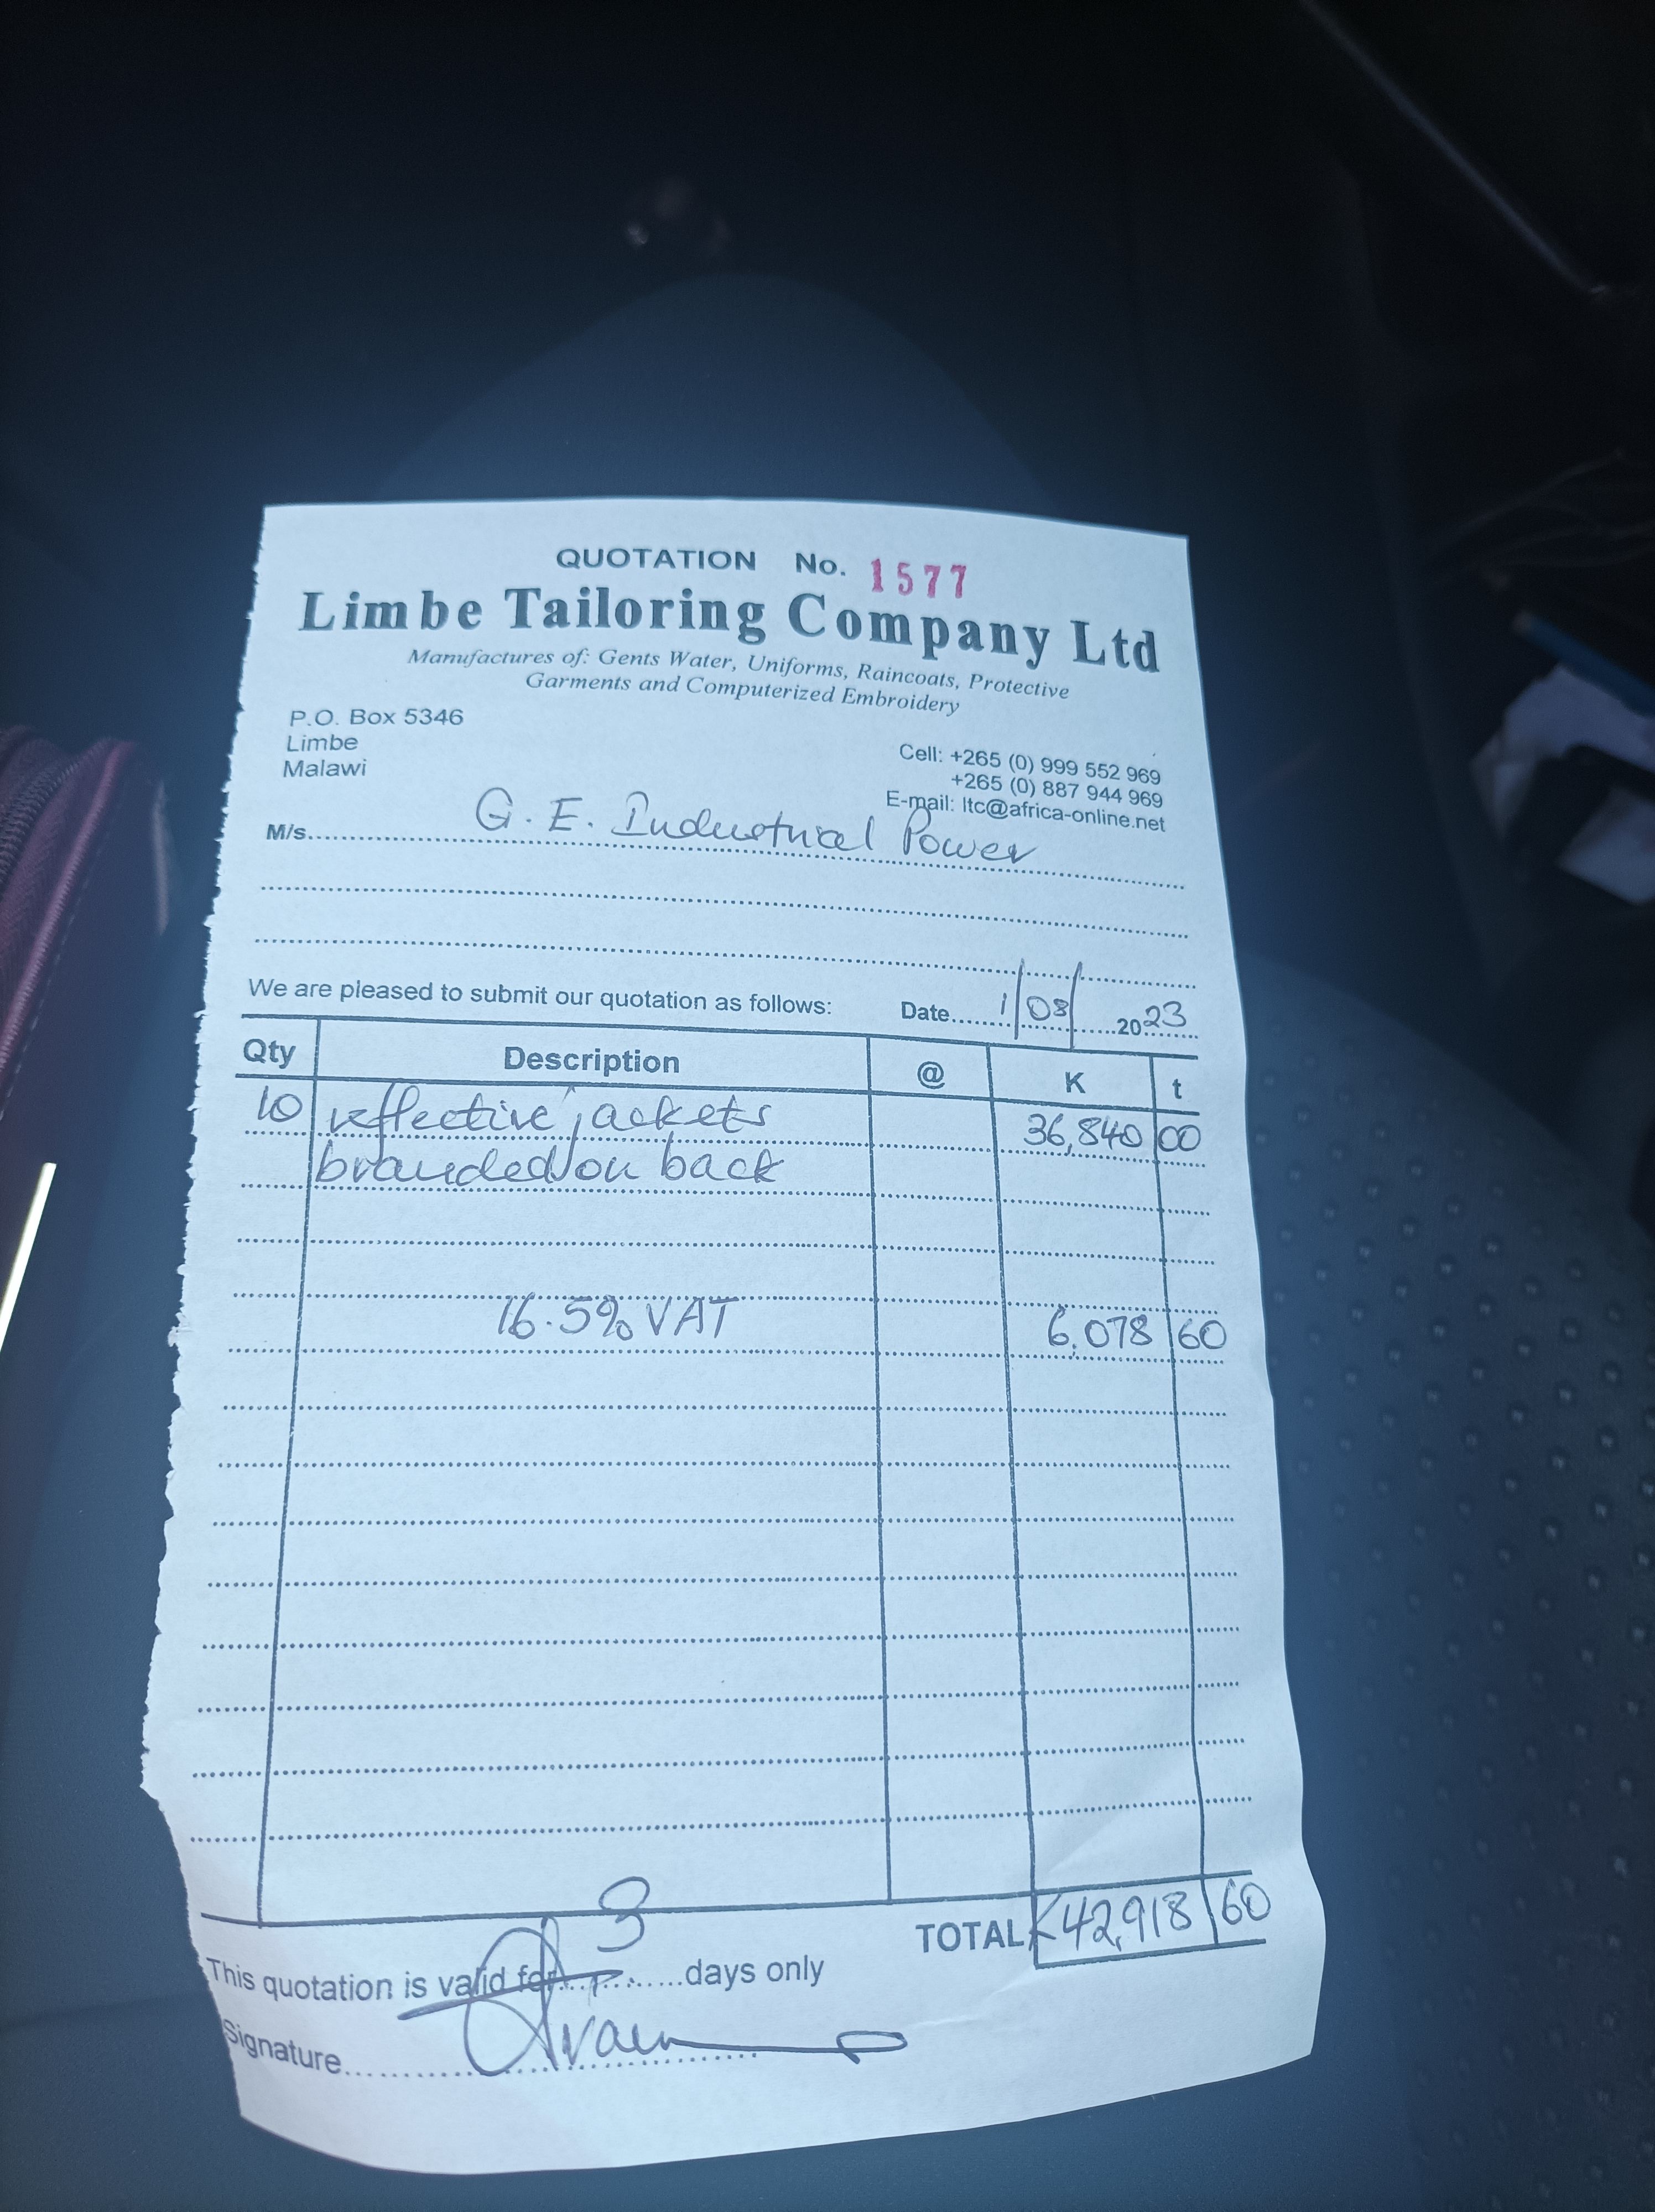 QUOTATION No. 1577
Limbe Tailoring Company Ltd
Manufactures of: Gents Water, Uniforms, Raincoats, Protective
Garments and Computerized Embroidery
P.O. Box 5346
Limbe
Malawi
Cell: +265 (0) 999 552 969
+265 (0) 887 944 969
E-mail: ltc@africa-online.net
M/s. G. E. Industrial Power
We are pleased to submit our quotation as follows: Date 1/08/2023
Qty Description @ K t
10 reflective jackets 36,840 00
branded on back
16.5% VAT 6,078 60
TOTAL K42,918 60
This quotation is valid for 3 days only
Signature